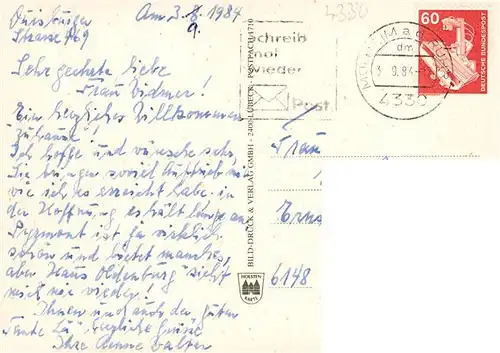 Duisburger
Strasse 769
Am 3.8.1984
9.
4330
Schreib
mal
wieder
Post
3.9.84
4330
60
DEUTSCHE BUNDESPOST
Sehr geehrte liebe
Frau Widmer!
Ein herzliches Willkommen
Zuhause!
Ich hoffe und wünsche sehr,
Sie bringen soviel Auftrieb mit
wie ich es erreicht habe in
der Hoffnung es hält lange an
Pyrmont ist ja wirklich
schön und bietet manches,
aber Haus Oldenburg sieht
mich nie wieder!
Ihnen und auch der guten
Tante herzliche Grüsse
Ihre Walter
BILD-DRUCK & VERLAG GMBH - 2400 LÜBECK - POSTFACH 1710
HOLSTEN
KARTE
Frau
Erns
6148